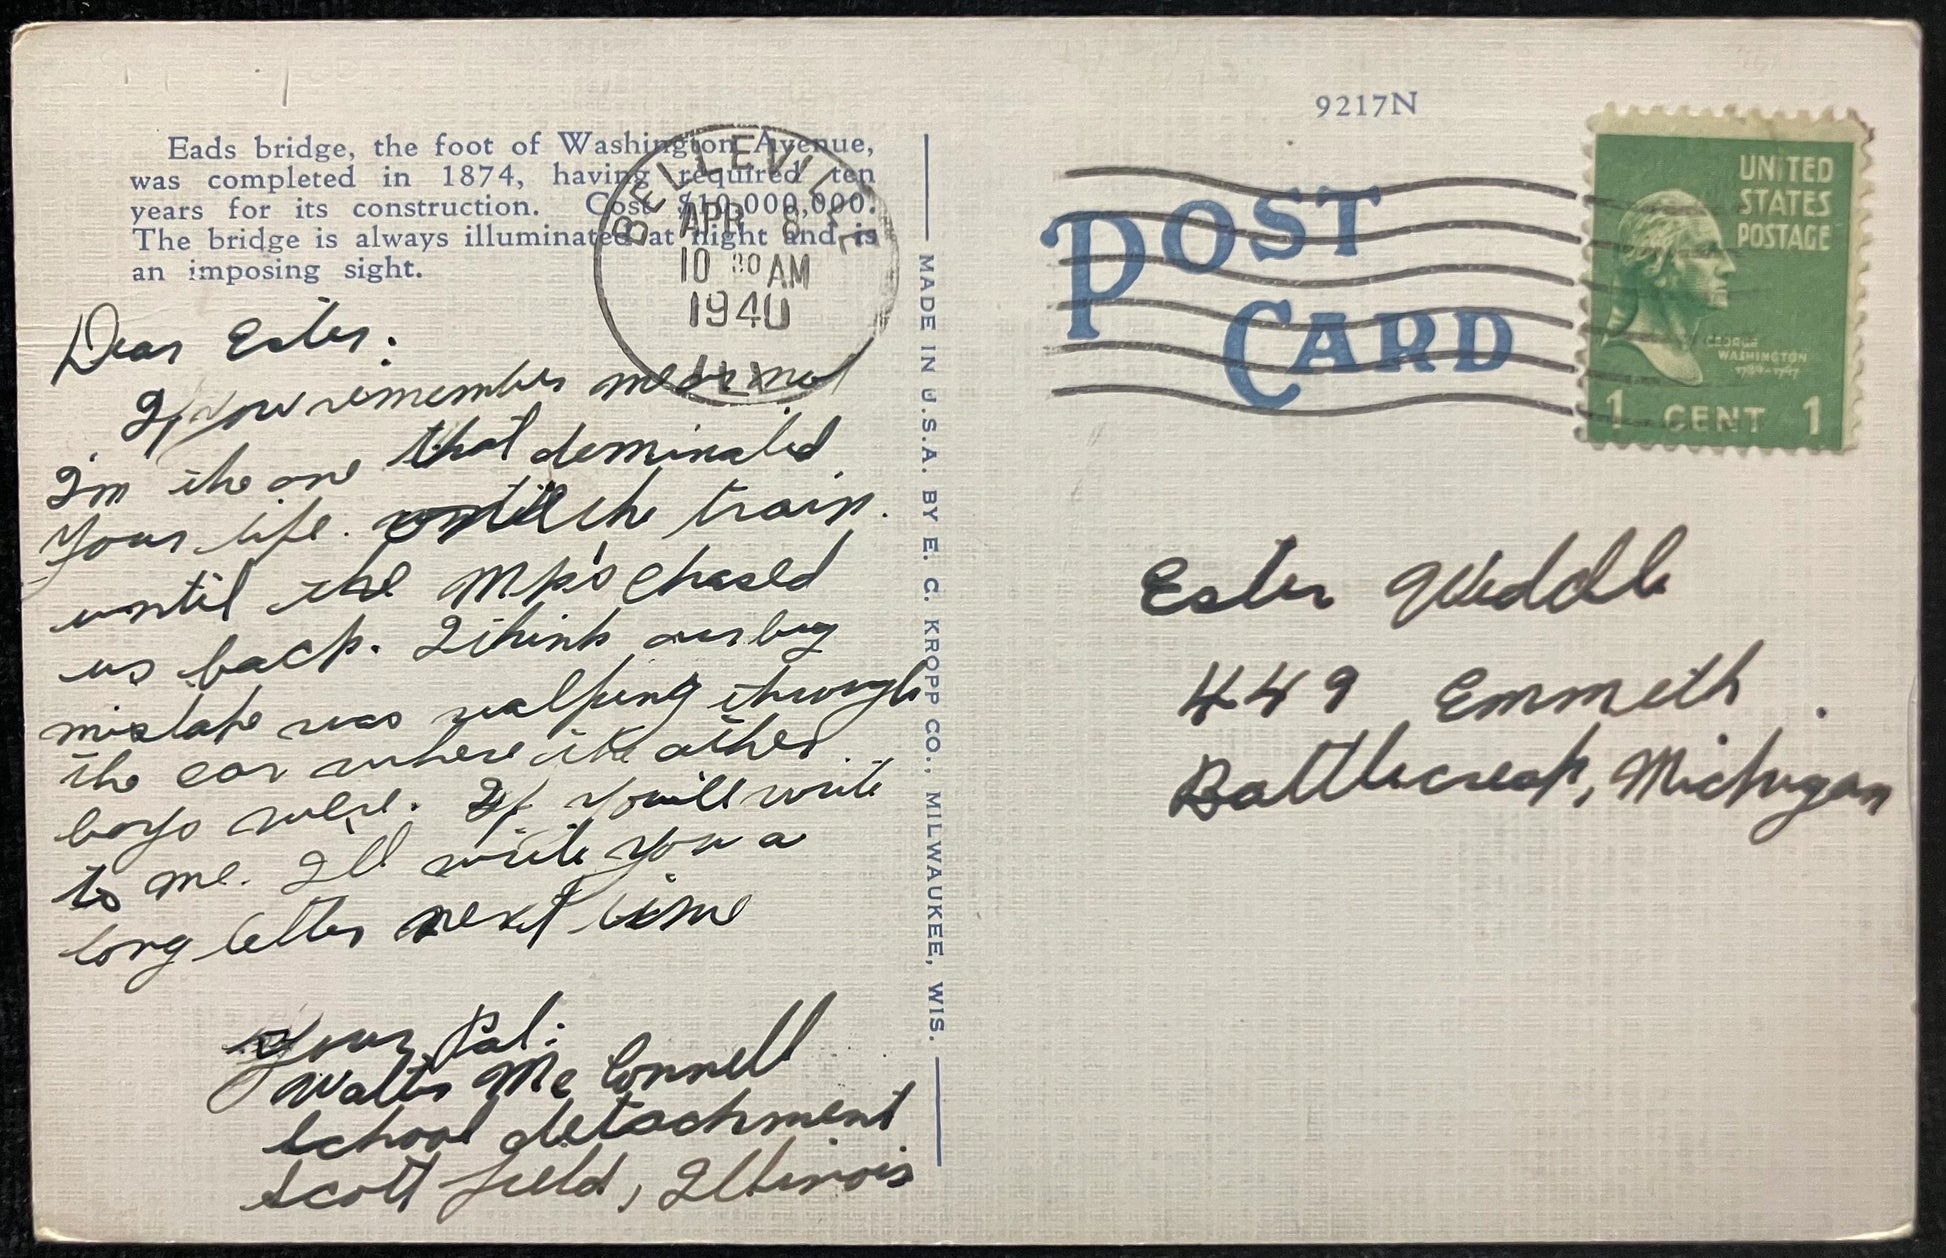 9217N
Eads bridge, the foot of Washington Avenue,
was completed in 1874, having required ten
years for its construction. Cost $10,000,000.
The bridge is always illuminated at night and is
an imposing sight.
BELLEVILLE
APR 8
10 30 AM
1940
ILL.
POST
CARD
UNITED
STATES
POSTAGE
GEORGE
WASHINGTON
1789-1797
1 CENT 1
Dear Ester:
If you remember me or not
I'm the one that dominated
your life. until the train.
until the MP's chased
us back. I think our big
mistake was walking through
the car where the other
boys were. If you will write
to me. I'll write you a
long letter next time
Your Pal:
Walter McConnell
School detachment
Scott field, Illinois
MADE IN U.S.A. BY E. C. KROPP CO., MILWAUKEE, WIS.
Ester Weddle
449 Emmeth
Battlecreek, Michigan